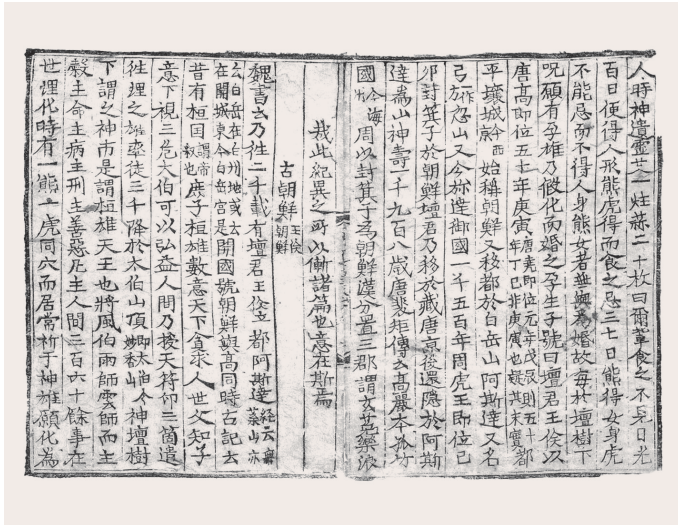 人時神遺靈艾一炷蒜二十枚曰爾軰食之不見日光
百日便得人形熊虎得而食之忌三七日熊得女身虎
不能忌而不得人身熊女者無與為婚故每於壇樹下
呪願有孕雄乃假化而婚之孕生子號曰壇君王儉以
唐高即位五十年庚寅唐堯即位元年戊辰則五十年丁巳非庚寅也疑其未實都
平壤城今西京始稱朝鮮又移都於白岳山阿斯達又名
弓一作方忽山又今旀達御國一千五百年周虎王即位己
卯封箕子於朝鮮壇君乃移於藏唐京後還隱於阿斯
達為山神壽一千九百八歲唐裵矩傳云高麗本孤竹
國今海州周以封箕子為朝鮮漢分置三郡謂玄菟樂浪
哉此紀異之所以慚諸篇也意在斯焉
古朝鮮王儉朝鮮
魏書云乃徃二千載有壇君王儉立都阿斯達經云無葉山亦
云白岳在白州地或云在開城東今白岳宮是開國號朝鮮與高同時古記云
昔有桓囯謂帝釋也庶子桓雄數意天下貪求人世父知子
意下視三危太伯可以弘益人間乃授天符印三箇遣
徃理之雄率徒三千降於太伯山頂即太伯今妙香山神壇樹
下謂之神市是謂桓雄天王也將風伯雨師雲師而主
糓主命主病主刑主善惡凡主人間三百六十餘事在
世理化時有一熊一虎同穴而居常祈于神雄願化為